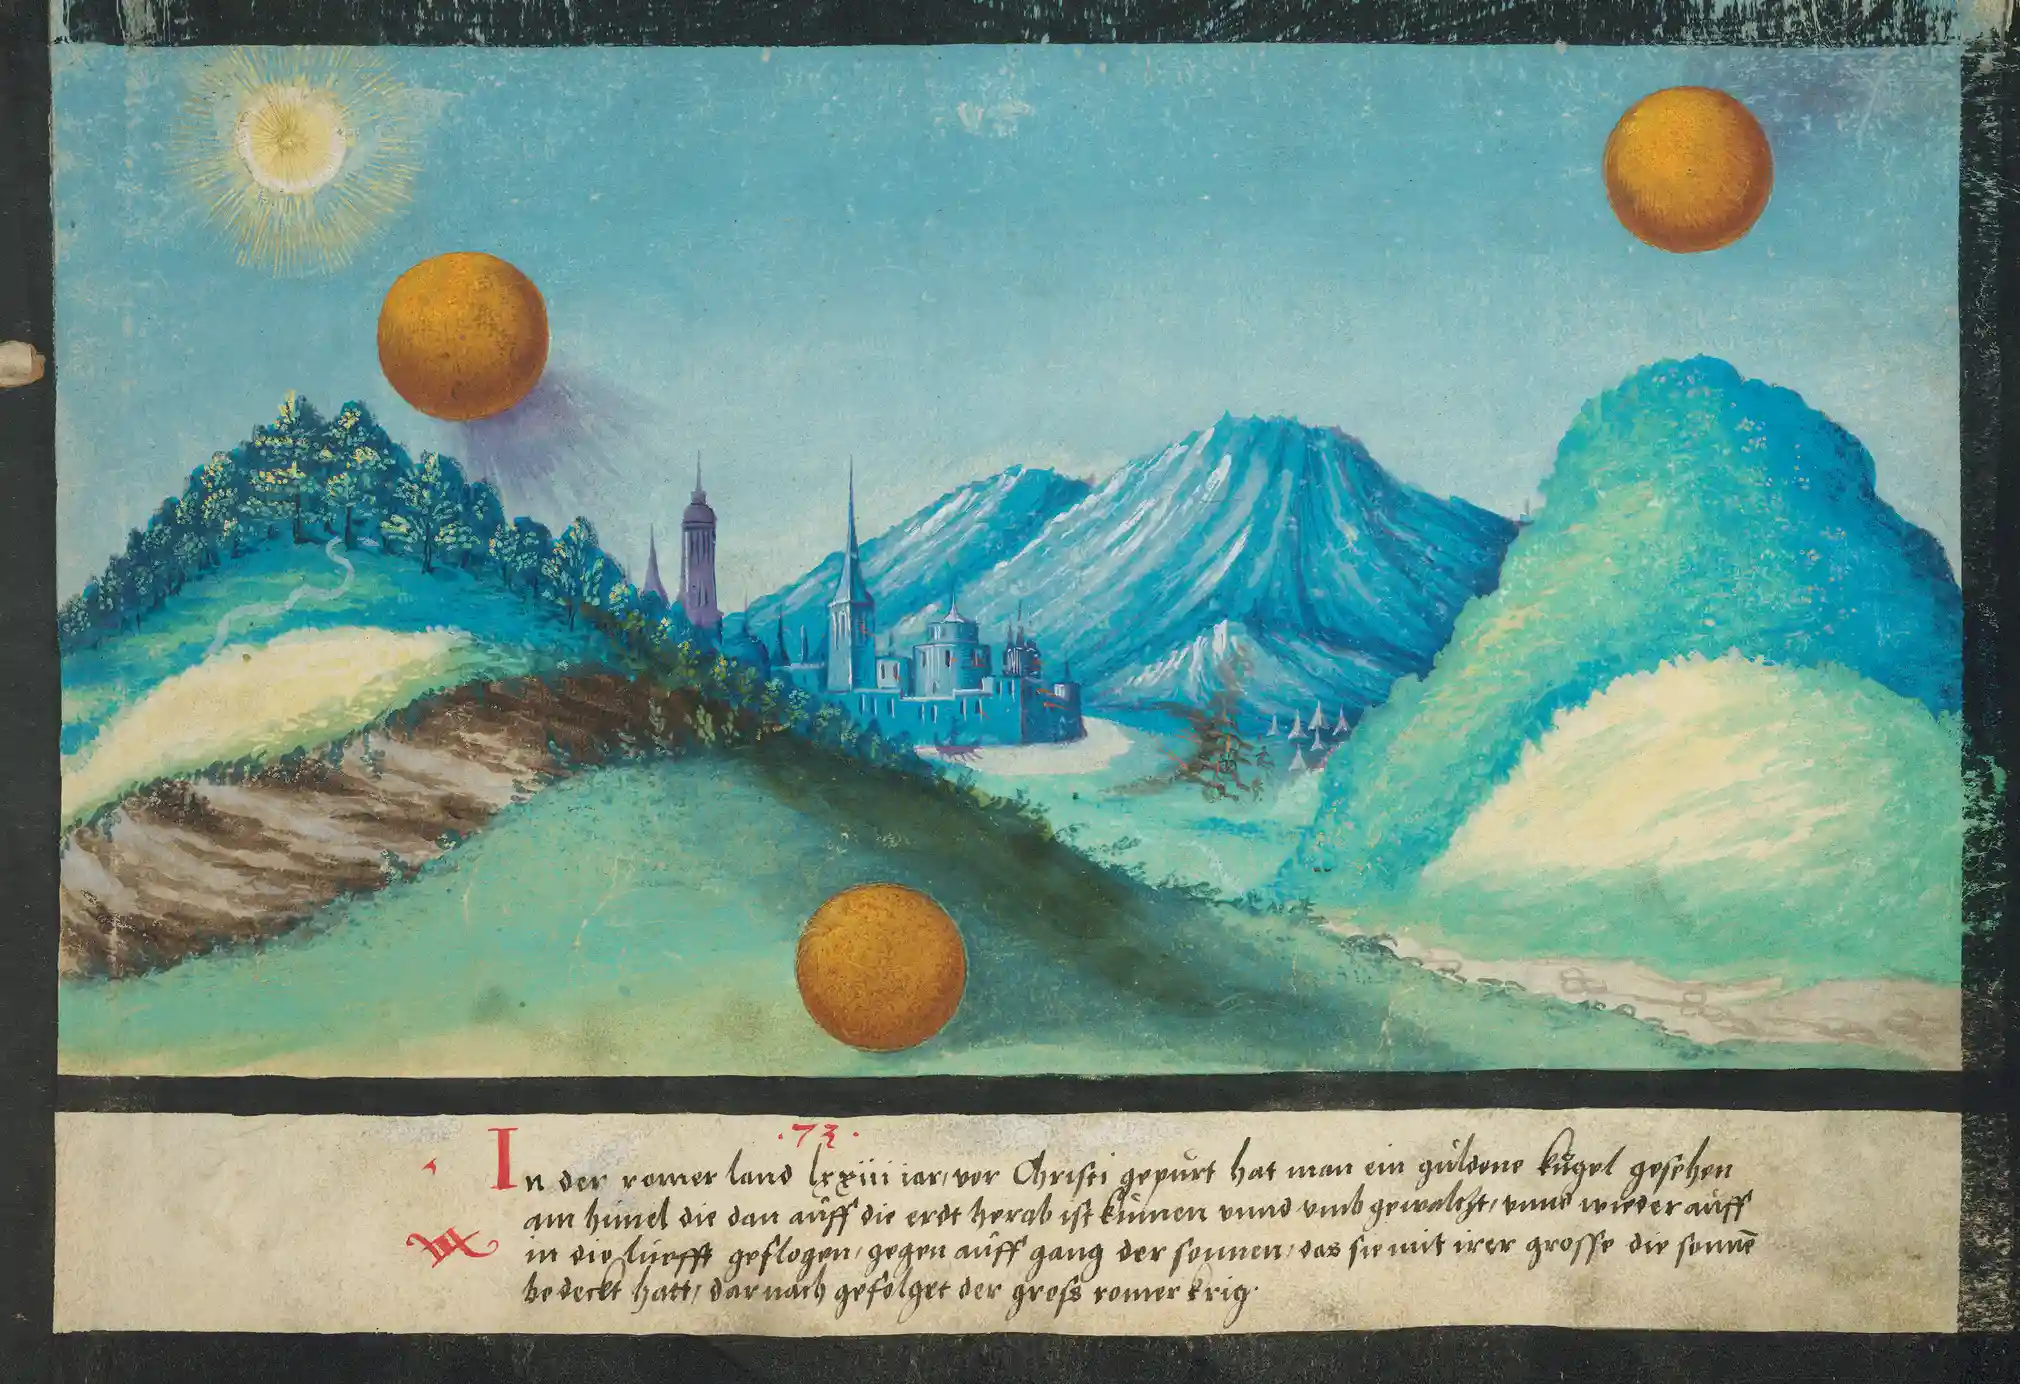 .73.
In der romer land lxxiii iar, vor Christi gepurt hat man ein guldene kugel gesehen
am himel die dan auff die erdt herab ist kumen vnnd vmb gewaltzt, vnnd wieder auff
in die lüefft geflogen, gegen auff gang der sonnen, das sie mit irer grosse die sonne
bedeckt hatt, darnach gefolget der gross romer krig.